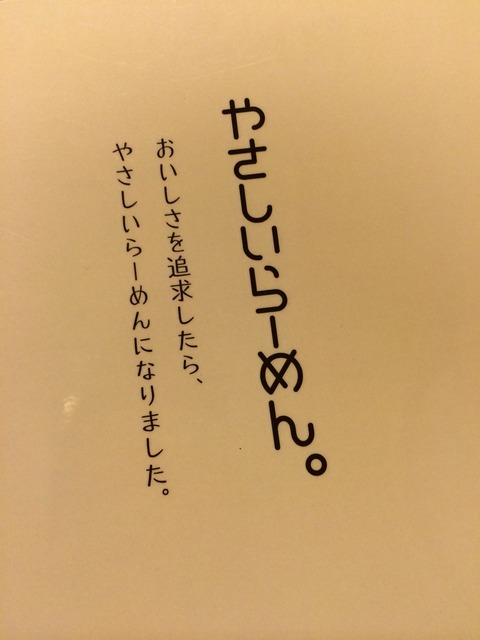 やさしいらーめん。
おいしさを追求したら、
やさしいらーめんになりました。